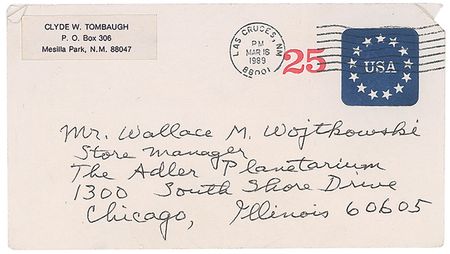 CLYDE W. TOMBAUGH
P. O. Box 306
Mesilla Park, N.M. 88047
LAS CRUCES, NM
PM
MAR 16
1989
88001
25
USA
Mr. Wallace M. Wojtkowski
Store Manager
The Adler Planetarium
1300 South Shore Drive
Chicago, Illinois 60605